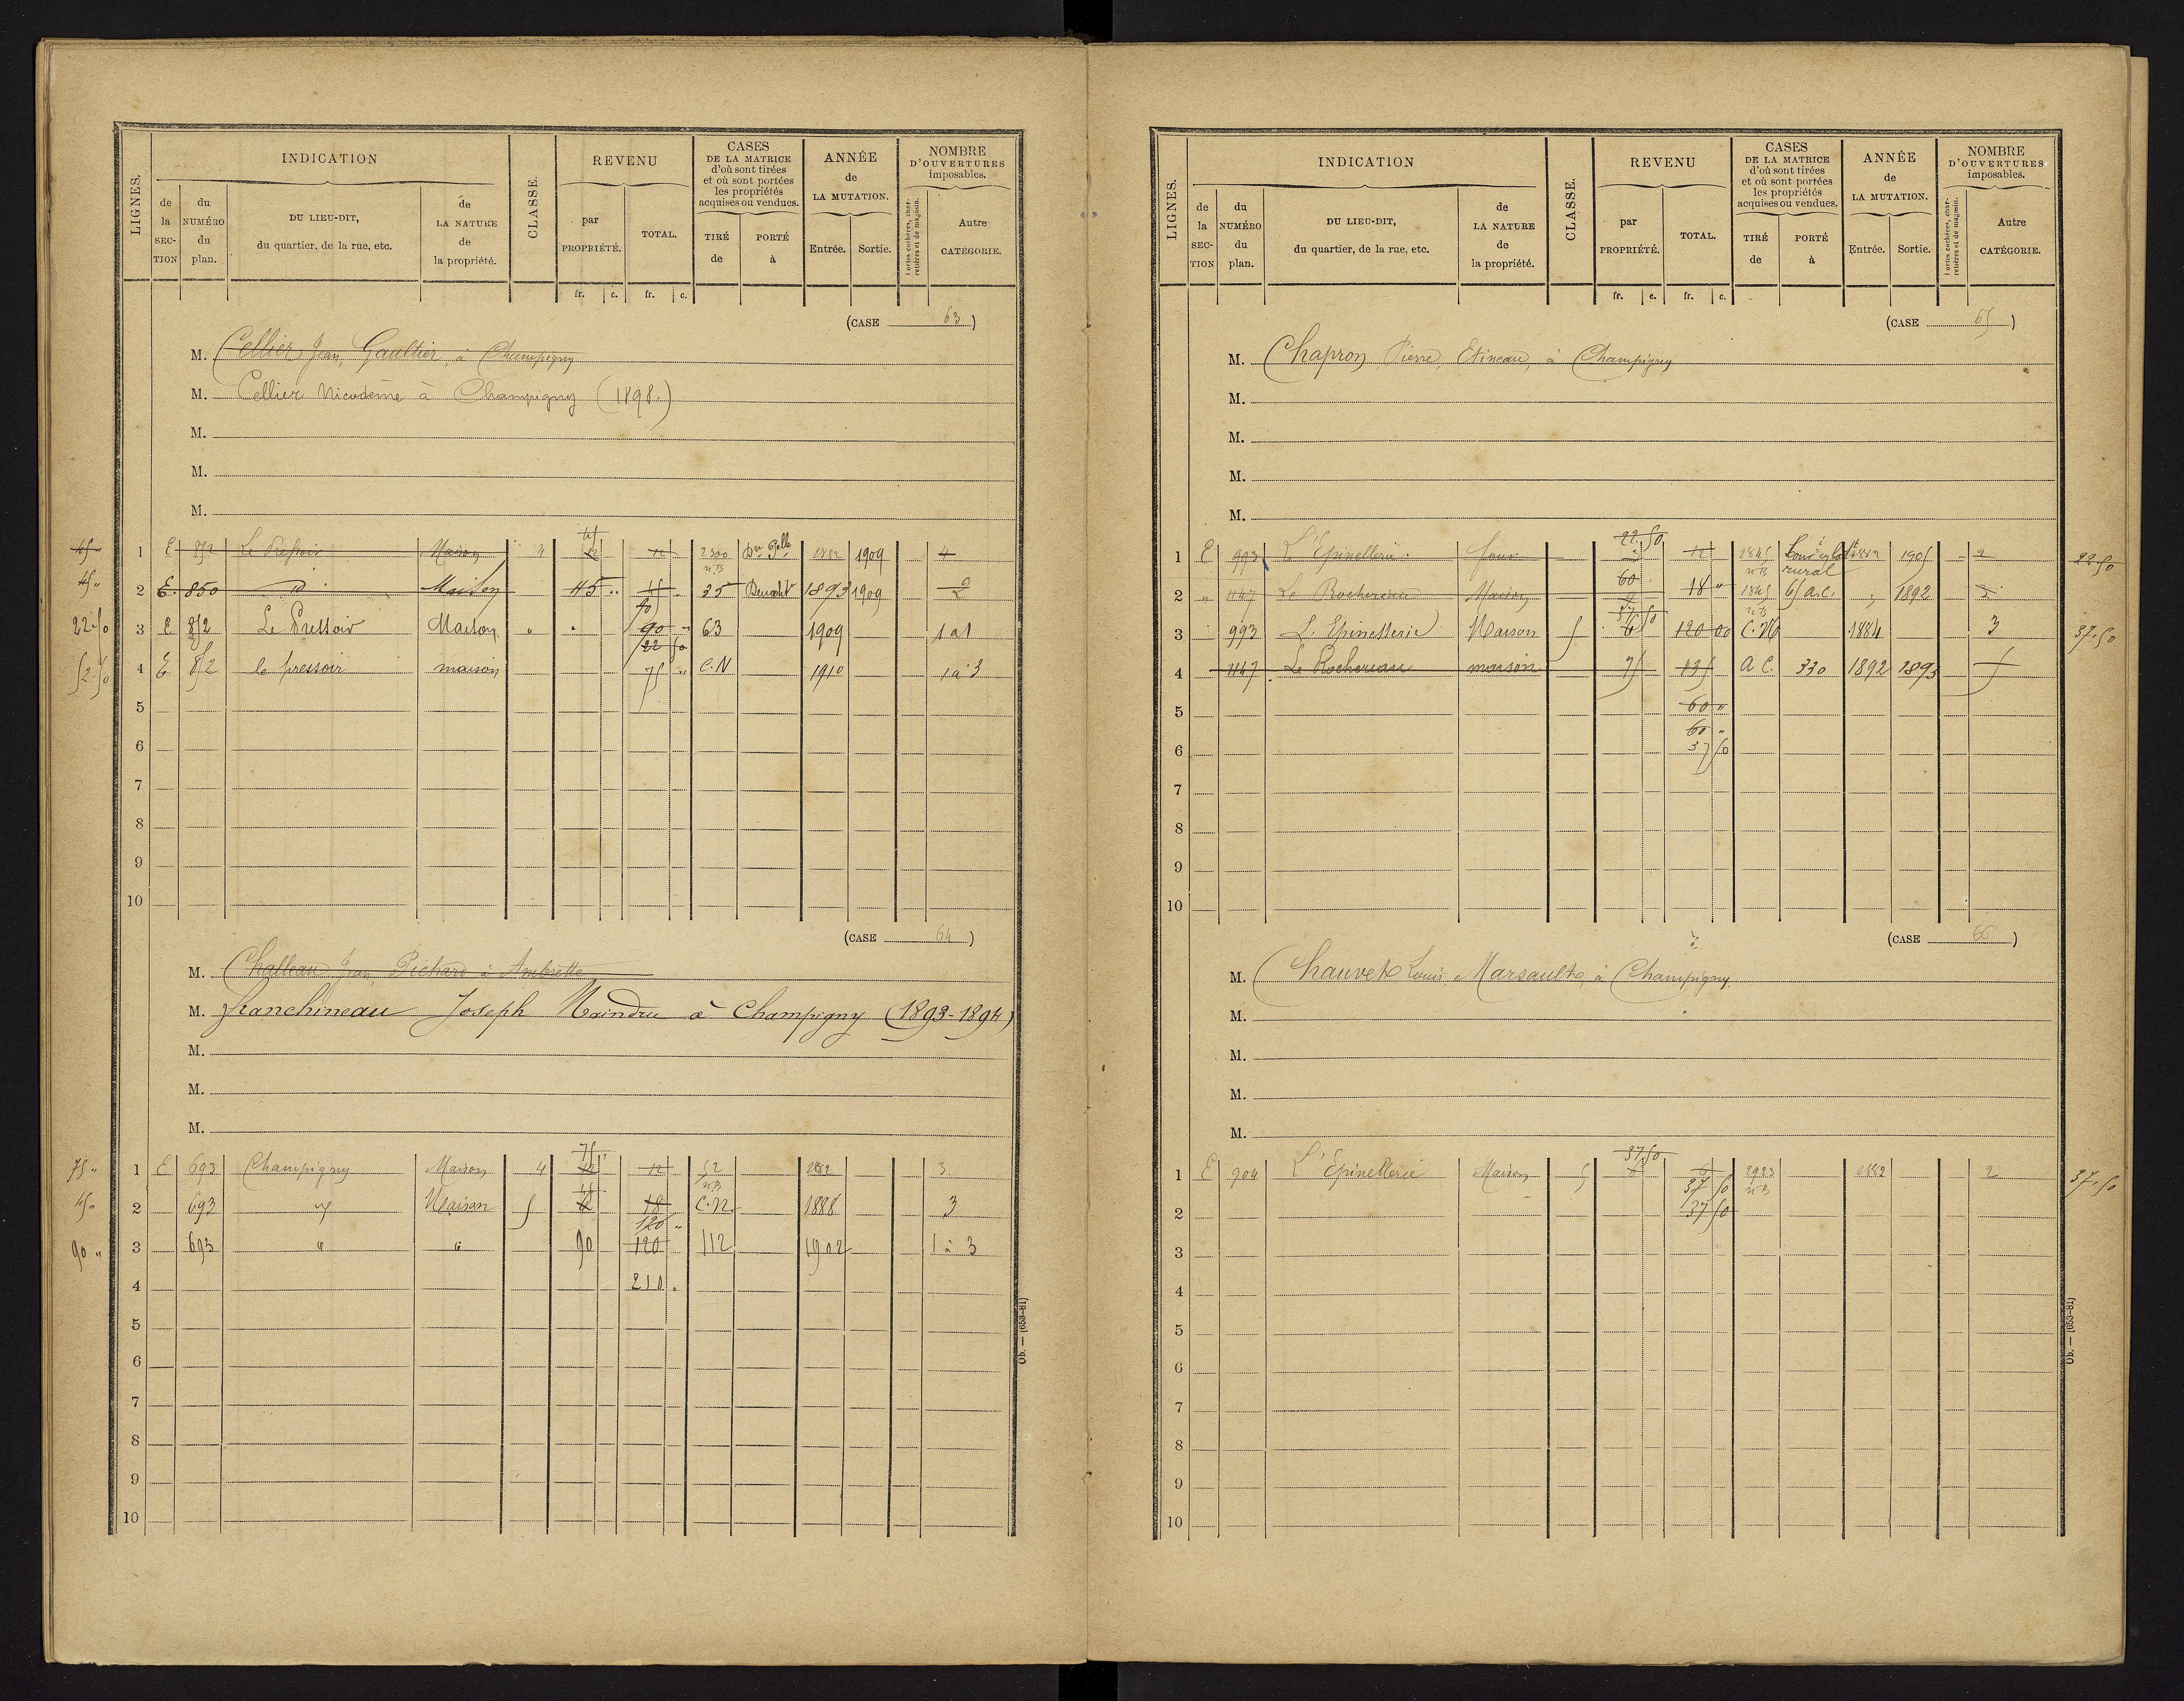 LIGNES.
INDICATION
de la SECTION
du NUMÉRO du plan.
DU LIEU-DIT, du quartier, de la rue, etc.
de LA NATURE de la propriété.
CLASSE.
REVENU
par PROPRIÉTÉ.
TOTAL.
CASES DE LA MATRICE d'où sont tirées et où sont portées les propriétés acquises ou vendues.
TIRÉ de
PORTÉ à
ANNÉE de LA MUTATION.
Entrée.
Sortie.
NOMBRE D'OUVERTURES imposables.
Portes cochères, charretières et de magasin.
Autre CATÉGORIE.
fr. c. fr. c.
(CASE 63)
M. Cellier Jean, Gaultier, à Champigny
M. Cellier Nicodème à Champigny (1898.)
M.
M.
M.
45 " 1 E 852 Le Pressoir Maison 4 45 12 12 2300 1882 1909 4
45 " 2 E. 850 d° Maison 45 " 35 1893 1909 2
90
22.50 3 E 852 Le Pressoir Maison " " 90 " 63 1909 1 a 1
22 50
52.50 4 E 852 le pressoir maison 75 " C.N 1910 1 à 3
5
6
7
8
9
10
(CASE 64)
M. Challeau Jean, Pichard à Ambrette
M. franchineau Joseph Maindru à Champigny (1893-1894)
M.
M.
M.
75 " 1 E 693 Champigny Maison 4 75 12 12 52 n B 1882 3.
45 " 2 693 Maison 5 45 6 18 C.N. 1888 3
120 "
90 " 3 693 " " 90 120 112 1902 1 à 3
4 210 "
5
6
7
8
9
10
Ob. — (653-81)
LIGNES.
INDICATION
de la SECTION
du NUMÉRO du plan.
DU LIEU-DIT, du quartier, de la rue, etc.
de LA NATURE de la propriété.
CLASSE.
REVENU
par PROPRIÉTÉ.
TOTAL.
CASES DE LA MATRICE d'où sont tirées et où sont portées les propriétés acquises ou vendues.
TIRÉ de
PORTÉ à
ANNÉE de LA MUTATION.
Entrée.
Sortie.
NOMBRE D'OUVERTURES imposables.
Portes cochères, charretières et de magasin.
Autre CATÉGORIE.
fr. c. fr. c.
(CASE 65)
M. Chapron Pierre, Etineau, à Champigny
M.
M.
M.
M.
22.50
1 E 993 L'Epinellerie. 12 1845 n B rural 1882 1905 2 22.50
60
2 " 1147 Le Rochereau Maison 9 18 " 1845 n B 65 a.c. " 1892 3
37 50
3 993 L'Epinellerie Maison 5 6 120 00 C.N 1884 3 37.50
4 1147 Le Rochereau maison 75 135 A C. 330 1892 1893 5
5 60 "
60 "
6 37 50
7
8
9
10
(CASE 66)
M. Chauvet Louis, Marsault, à Champigny.
M.
M.
M.
M.
37.50
1 E 904 L'Epinellerie Maison 5 6 6 2923 n B 1882 2 37.50
37 50
2 37 50
3
4
5
6
7
8
9
10
Ob. — (653-81)